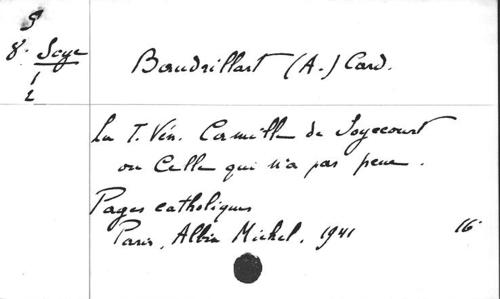 9
8. Soye
1
2
Baudrillart (A.) Card.
La T. Vén. Camille de Soyecourt
ou Celle qui n'a pas peur.
Pages catholiques
Paris, Albin Michel, 1941 16°